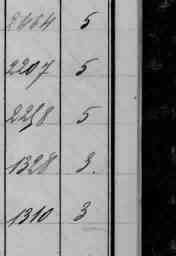 2464 5
2207 5
2258 5
1328 3.
1310 3